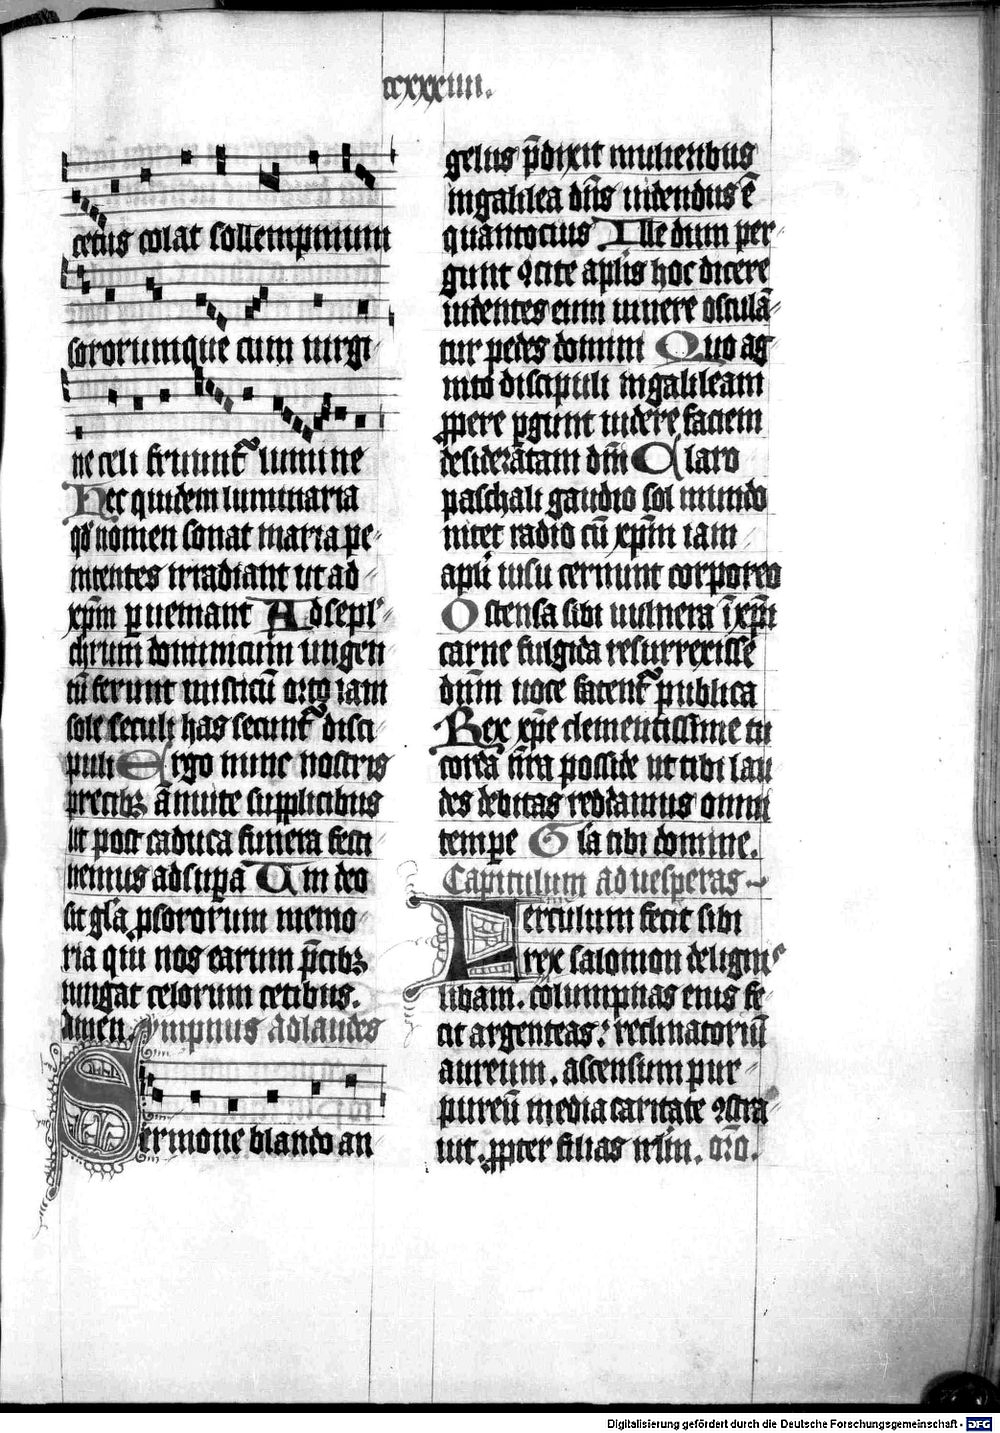 ccxxxiiii.
cetus colat sollempnium
sororumque cum virgi-
ne celi fruunt᷑ lumine
Hec quidem luminaria
qd̕ nomen sonat maria pe-
nitentes irradiant ut ad
xp̄m ꝑueniant Ad sepl̕-
chrum dominicum ungen
tū ferunt misticū orto iam
sole seculi has secunt᷑ disci
puli Ergo nunc nostris
precibꝫ ānuite supplicibus
ut post caduca funera festi
nemus ad suꝑa Uni deo
sit gl̄a ꝓ sororum memo-
ria qui nos earum p̄cibꝫ
iungat celorum cetibus.
Amen. Ympnus ad laudes
Sermone blando an
gelus p̄dixit mulieribus
in galilea dn̄s videndus ē
quantocius Ille dum per-
gunt ꝯcite apl̄is hoc dicere
videntes eum vivere osculā-
tur pedes domini Quo ag
nito discipuli in galileam
ꝓpere ꝑgunt videre faciem
desideratam dn̄i Claro
paschali gaudio sol mundo
nitet radio cū xp̄m iam
apl̄i visu cernunt corporeo
Ostensa sibi vulnera ī xp̄i
carne fulgida resurrexisse
dn̄m voce fatent᷑ publica
Rex xp̄e clementissime tu
corda n̄ra posside ut tibi lau
des debitas reddamus omni
tempe Gl̄a tibi domine.
Capitulum ad vesperas
Ferculum fecit sibi
rex salomon de lignis
libani. columpnas eius fe
cit argenteas: reclinatoriū
aureum. ascensum pur-
pureū media caritate ꝯstra
uit. ꝓpter filias irl̄m. or̄o.
Digitalisierung gefördert durch die Deutsche Forschungsgemeinschaft - DFG